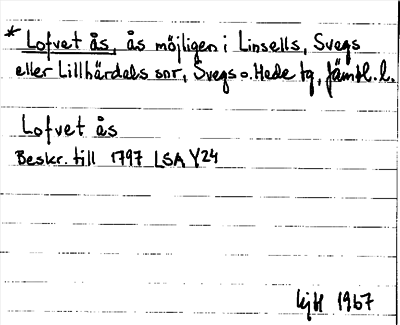 * Lofvet ås, ås möjligen i Linsells, Svegs
eller Lillhärdals snr, Svegs o. Hede tg, Jämtl. l.
Lofvet ås
Beskr. till 1797 LSA Y24
1967